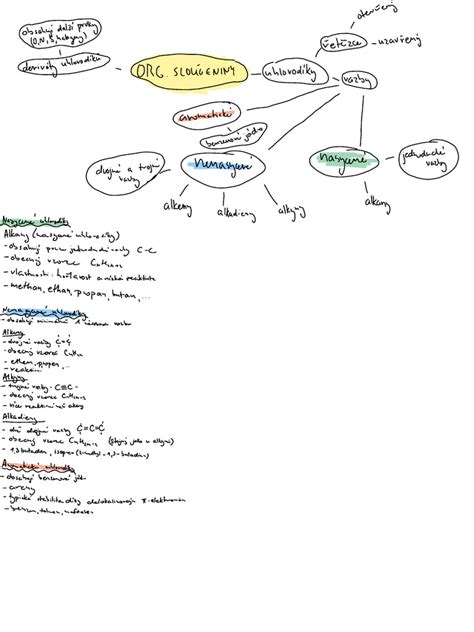 otevřený
obsahují další prvky
(O, N, S, halogeny)
řetězce
uzavřený
deriváty uhlovodíků
ORG. SLOUČENINY
uhlovodíky
vazby
aromatické
benzenové jádro
dvojné a trojné
vazby
nenasycené
nasycené
jednoduché
vazby
alkeny
alkadieny
alkyny
alkany
Nasycené uhlovodíky
Alkany (nasycené uhlovodíky)
- obsahují pouze jednoduché vazby C-C
- obecný vzorec CnH2n+2
- vlastnosti: hořlavost a nízká reaktivita
- methan, ethan, propan, butan, ...
Nenasycené uhlovodíky
- obsahují minimálně 1 násobnou vazbu
Alkeny
- dvojné vazby C=C
- obecný vzorec CnH2n
- ethen, propen, ...
- reaktivní
Alkyny
- trojné vazby -C≡C-
- obecný vzorec CnH2n-2
- více reaktivní než alkeny
Alkadieny
- dvě dvojné vazby C=C=C
- obecný vzorec CnH2n-2 (stejný jako u alkynů)
- 1,3 butadien, isopren (2-methyl-1,3-butadien)
Aromatické uhlovodíky
- obsahují benzenové jádro
- areny
- typická stabilita díky delokalizovaným π-elektronům
- benzen, toluen, naftalen